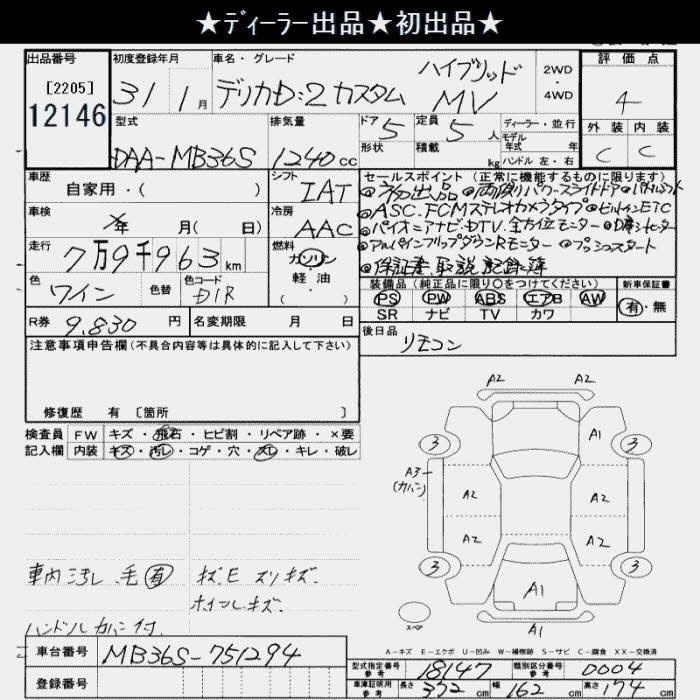 ★ディーラー出品★初出品★
出品番号
[2205]
12146
初度登録年月
31 1月
車名・グレード
デリカD:2 カスタム
ハイブリッド
MV
2WD
・
4WD
評価点
4
外装 内装
C C
型式
DAA-MB36S
排気量
1240cc
ドア 5
形状
定員 5人
積載 kg
ディーラー・並行
モデル
年式 年
ハンドル 左・右
車歴
自家用・( )
シフト
IAT
車検
年 月( 日)
冷房
AAC
走行
7万9千963km
燃料
ガソリン
軽油
・
( )
色
ワイン
色替
色コード
R券 9.830円
名変期限 月 日
セールスポイント(正常に機能するものに限ります)
◎初出品◎両側パワースライドドア◎パドルシフト
◎ASC.FCMステレオカメラタイプ◎ビルトインETC
◎パイオニアナビ・DTV.全方位モニター◎D席シートヒーター
◎アルパインフリップダウンRモニター◎プッシュスタート
◎保証書.取説.記録簿
装備品(純正品に限り○をつけてください)
PS PW ABS エアB AW
SR ナビ TV カワ
新車保証書
有・無
後日品
リモコン
注意事項申告欄(不具合内容等は具体的に記入して下さい)
修復歴 有 [箇所 ]
検査員
記入欄
FW キズ・飛石・ヒビ割・リペア跡・×要
内装 キズ・汚レ・コゲ・穴・スレ・キレ・破レ
車内汚レ 毛有 キズE スリキズ.
ホイールキズ.
ハンドルカバー付.
A2 A2
3 A1 3
A3
(カバー)
A2 A2
A2 A2
3 3
A1
スペア
A1
A－キズ E－エクボ U－凹み W－補修跡 S－サビ C－腐食 XX－交換済
車台番号 MB36S-751294
登録番号
型式指定番号
参考
18147
類別区分番号
参考
0004
車庫証明用
参考
長さ 372cm
幅 162cm
高さ 174cm